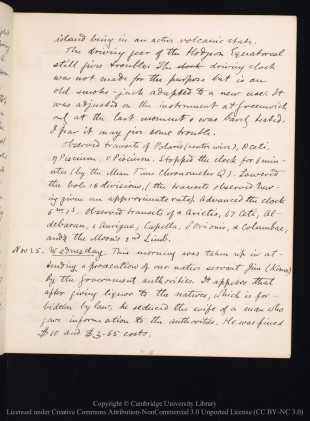 island being in an active volcanic state.
The driving gear of the Hodgson Equatoreal
still gives trouble. The clock driving clock
was not made for the purpose but is an
old smoke-jack adapted to a new use. It
was adjusted on the instrument at Greenwich
only at the last moment & was barely tested.
I fear it may give some trouble.
Observed transits of Polaris (center wire), O Ceti,
η Piscium, Piscium. Stopped the clock for 6 min-
utes (by the Mean Time Chronometer Q). Lowered
the bob 18 divisions, (the transits observed hav-
ing given an approximate rate). Advanced the clock
6m 13s. Observed transits of α Arietis, 67 Ceti, Al-
debaran, ι Aurigae, Capella, Orionis, α Columbae,
and the Moon's 2nd Limb.
Nov 25. Wednesday. This morning was taken up in at-
tending a prosecution of our native servant Jim (Kimo)
by the Government authorities. It appears that
after giving liquor to the natives, which is for-
bidden by law, he seduced the wife of a man who
gave information to the authorities. He was fined
$10 and $3.65 costs.
Copyright © Cambridge University Library
Licensed under Creative Commons Attribution-NonCommercial 3.0 Unported License (CC BY-NC 3.0)